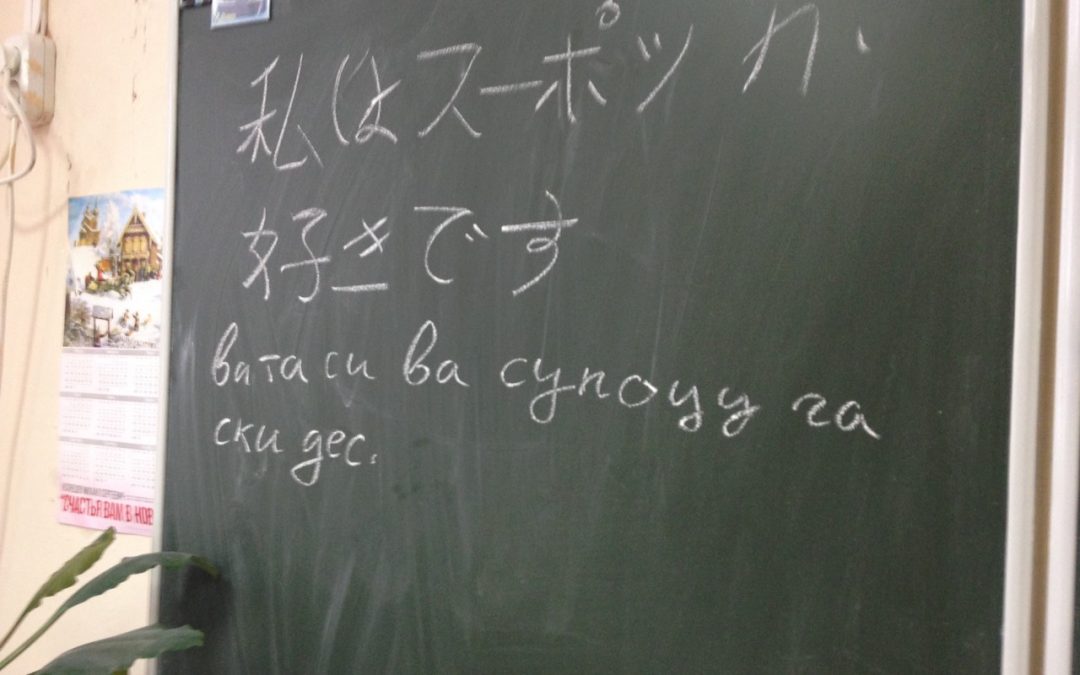 私はスーポツか
好きです
ватаси ва супоцу га
ски дес.
СЧАСТЬЯ ВАМ В НОВ